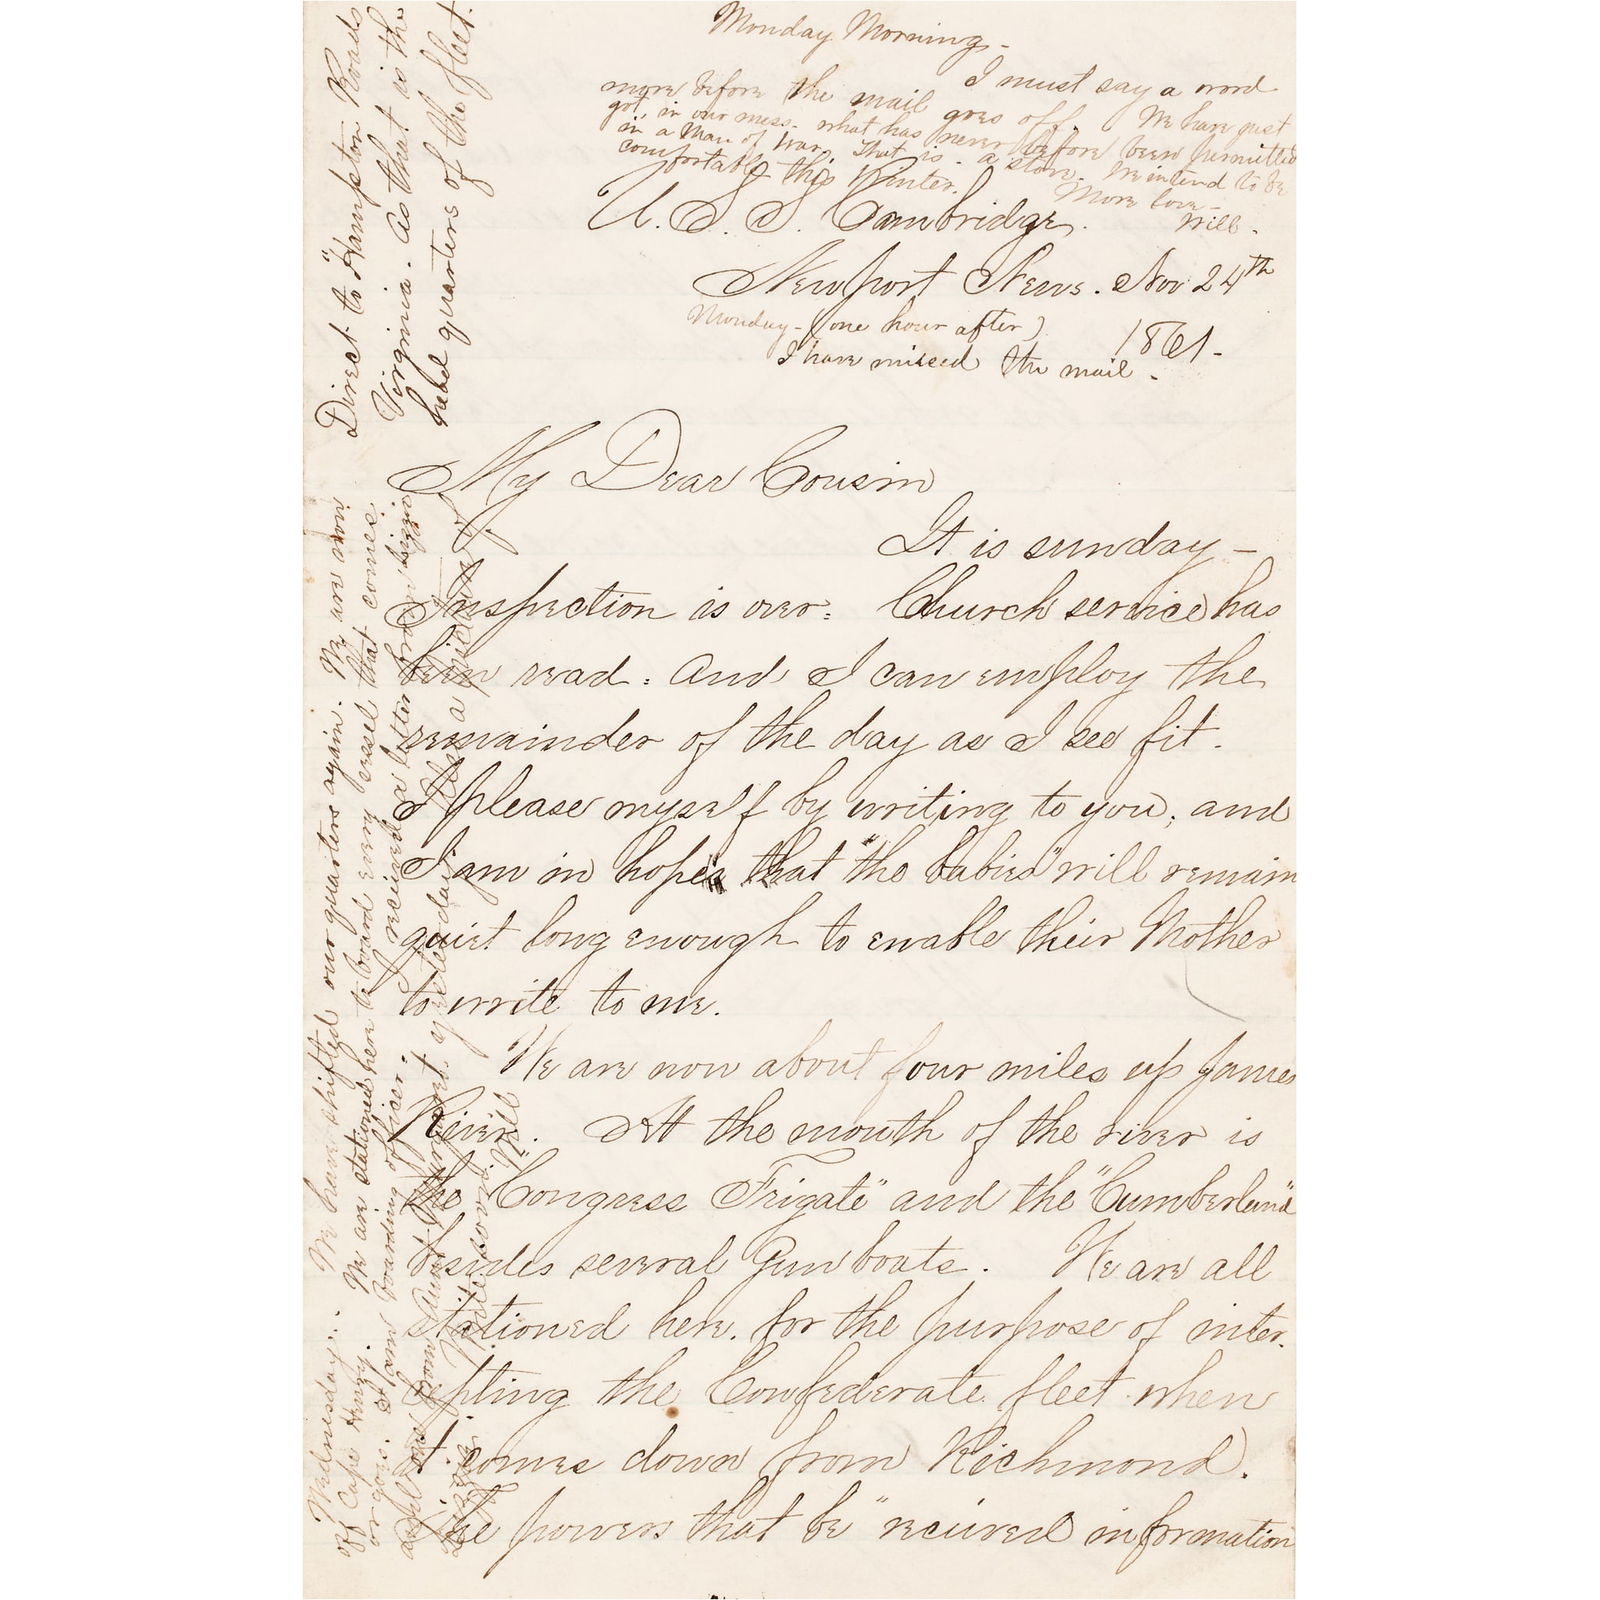 Monday Morning -
I must say a word
more before the mail goes off. We have just
got in our mess - what has never before been permitted
in a Man of War, that is - a stove. We intend to be
comfortable this Winter.
More love -
Will.
U.S.S. Cambridge.
Newport News. Nov 24th
1861.
Monday - (one hour after)
I have missed the mail.
My Dear Cousin
It is sunday -
Inspection is over. Church service has
been read. And I can employ the
remainder of the day as I see fit.
I please myself by writing to you, and
I am in hopes that "the babies" will remain
quiet long enough to enable their Mother
to write to me.
We are now about four miles up James
River. At the mouth of the river is
the "Congress Frigate" and the "Cumberland"
besides several Gun boats. We are all
stationed here. for the purpose of inter-
cepting the Confederate fleet when
it comes down from Richmond.
"The powers that be" received information
Direct to "Hampton Roads
Virginia. As that is the
head quarters of the fleet.
Wednesday. We have shifted our quarters again. We are now
off Cape Henry. We are stationed here to board every vessel that comes
or goes. I am boarding officer.
I received a letter from Lizzie
and one from Aunt yesterday.
Write soon. Will